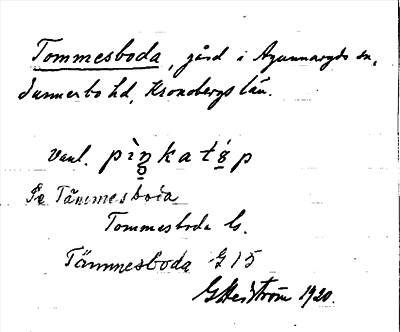 Tommesboda, gård i Agunnaryds sn,
Sunnerbo hd, Kronobergs län.
Vanl.
Se Tämmesboda
Tommesboda G.
Tämmesboda G 15
G Hedström 1920.